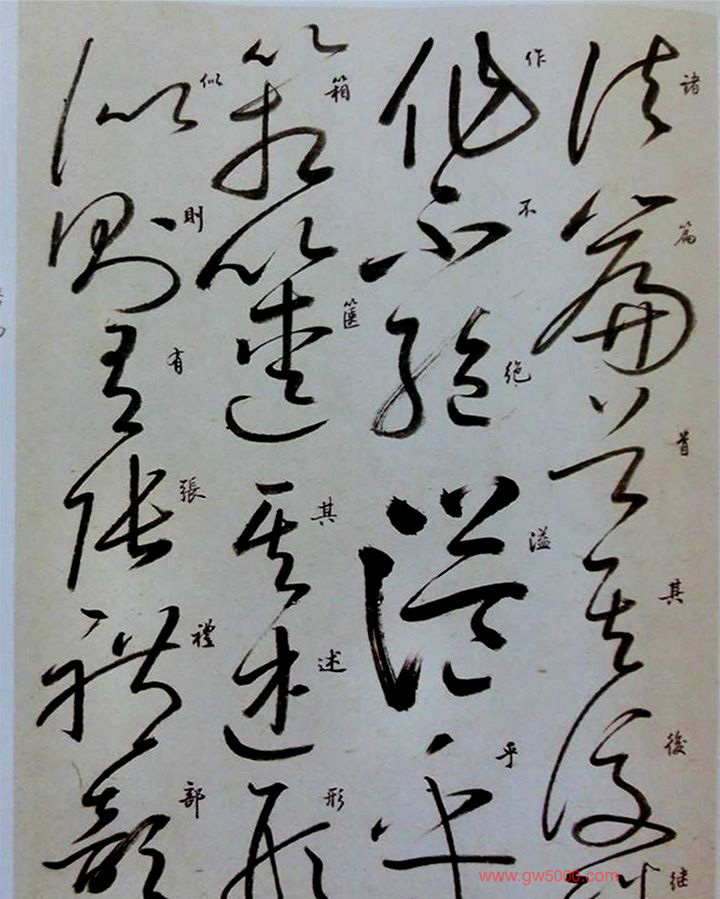 諸篇首其後继
作不絶溢乎
箱箧其述形
似則有張禮部
www.gw5000.com